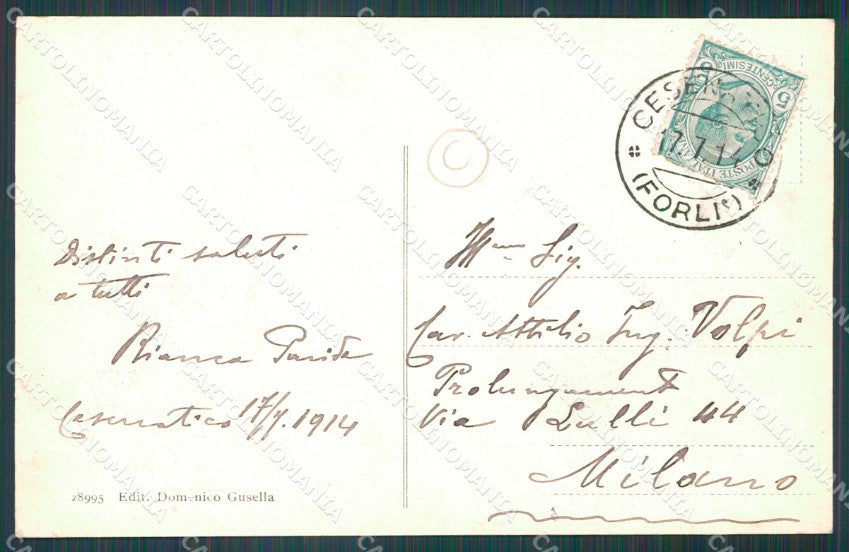 Distinti saluti
a tutti
Bianca
Cesenatico 17/7.1914
28995 Edit. Domenico Gusella
5 CENTESIMI 5
POSTE ITALIANE
CESENATICO
17.7.14
(FORLI')
Ill.mo Sig.
Cav. Attilio Ing. Volpi
Prolungamento
Via Lulli 44
Milano
CARTOLINOMANIA